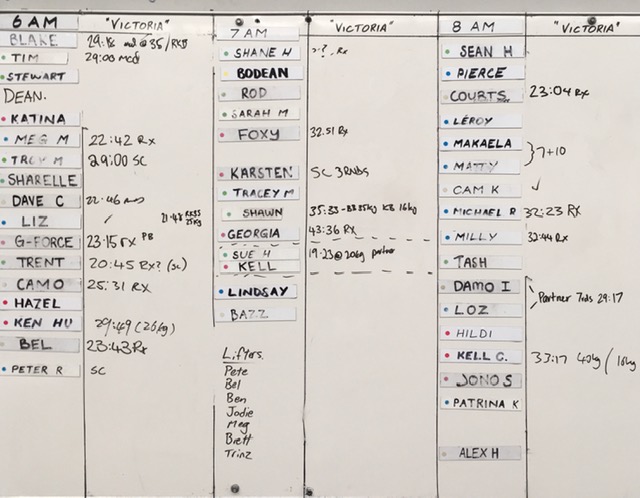 6 AM "VICTORIA"
BLAKE
TIM 29:00
STEWART
DEAN.
KATINA
MEG M 22:42 RX
TROY M 29:00 SC
SHARELLE
DAVE C 22:46
LIZ
G-FORCE 23:15 RX PB
TRENT 20:45 RX? (SC)
CAMO 25:31 RX
HAZEL
KEN HU 29:49 (20kg)
BEL 23:43 Rx
PETER R SC
7 AM "VICTORIA"
SHANE H Rx
BODEAN
ROD
SARAH M
FOXY 32.51 Rx
KARSTEN SC 3RNDS
TRACEY M
SHAWN 35:33-BB 35kg KB 16kg
GEORGIA 43:36 RX
SUE H 19:23@20kg partner
KELL
LINDSAY
BAZZ
Lifters.
Pete
Bel
Ben
Jodie
Meg
Brett
Trinz
8 AM "VICTORIA"
SEAN H
PIERCE
COURTS 23:04 RX
LEROY
MAKAELA
MATTY } 7+10
CAM K ✓
MICHAEL R 32:23 RX
MILLY 32:44 RX
TASH
DAMO I
LOZ Partner 7rds 29:17
HILDI
KELL G. 33:17
JONO S
PATRINA K
ALEX H